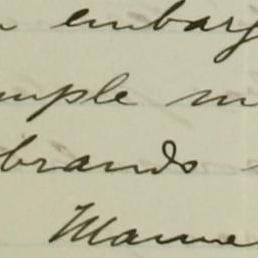 embarg
mple m
brands
Manne